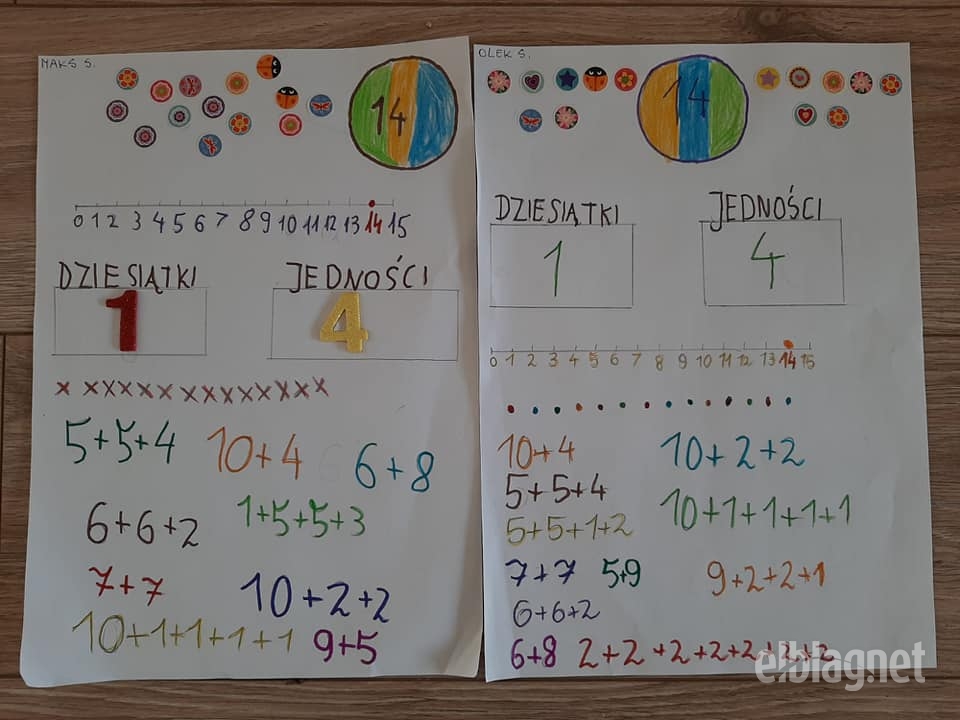 MAKS S.
14
0 1 2 3 4 5 6 7 8 9 10 11 12 13 14 15
DZIESIĄTKI JEDNOŚCI
1 4
x x x x x x x x x x x x x x
5+5+4 10+4 6+8
6+6+2 1+5+5+3
7+7 10+2+2
10+1+1+1+1 9+5
OLEK S.
14
DZIESIĄTKI JEDNOŚCI
1 4
0 1 2 3 4 5 6 7 8 9 10 11 12 13 14 15
10+4 10+2+2
5+5+4
5+5+1+2 10+1+1+1+1
7+7 5+9 9+2+2+1
6+6+2
6+8 2+2+2+2+2+2+2
elblag.net